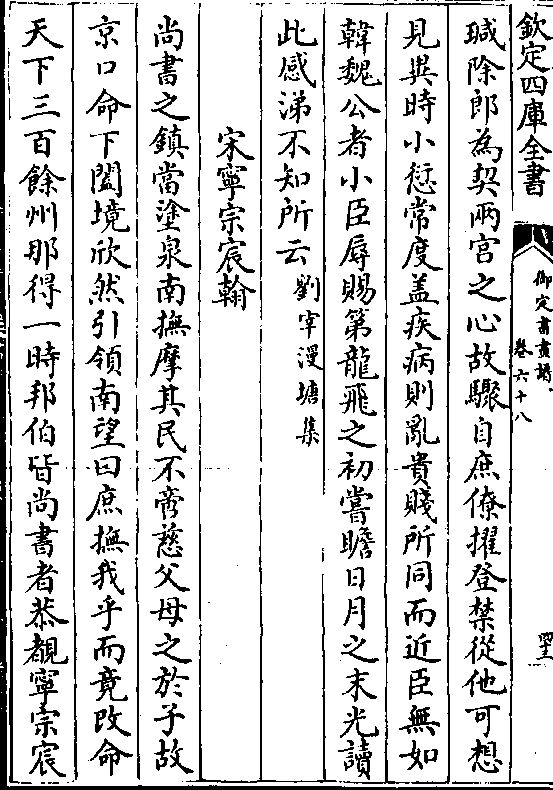 欽定四庫全書
御定書畫譜
卷六十八
瑊除郎為契兩宮之心故驟自庶僚擢登禁從他可想
見與時小愆常度盖疾病則亂貴賤所同而近臣無如
韓魏公者小臣辱賜第龍飛之初嘗瞻日月之末光讀
此感涕不知所云劉宰漫塘集
宋寧宗宸翰
尚書之鎮當塗泉南撫摩其民不啻慈父母之於子故
京口命下闔境欣然引領南望曰庶撫我乎而竟改命
天下三百餘州那得一時邦伯皆尚書者恭覩寧宗宸